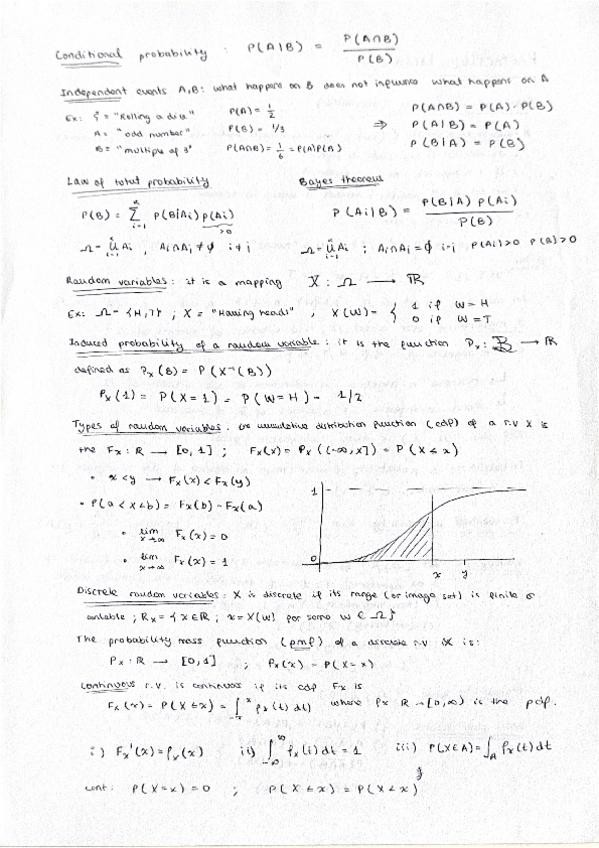 Conditional probability : P(A|B) = P(A∩B) / P(B)
Independent events A,B: what happens on B does not influence what happens on A
Ex: ξ = "Rolling a dice" P(A) = 1/2 P(A∩B) = P(A)·P(B)
A = "odd number" P(B) = 1/3 ⇒ P(A|B) = P(A)
B = "multiple of 3" P(A∩B) = 1/6 = P(A)P(A) P(B|A) = P(B)
Law of total probability Bayes theorem
P(B) = Σ_{i=1}^{n} P(B|Ai) P(Ai) P(Ai|B) = P(B|A) P(Ai) / P(B)
>0
Ω = ∪_{i=1} Ai , Ai∩Aj ≠ ϕ i≠j Ω = ∪_{i=1} Ai ; Ai∩Aj = ϕ i≠j P(Ai)>0 P(A)>0
Random variables : it is a mapping X : Ω ⟶ ℝ
Ex: Ω = {H,T} ; X = "Having heads" , X(W) = { 1 if W = H
0 if W = T
Induced probability of a random variable : it is the function Px : B ⟶ ℝ
defined as Px(B) = P(X⁻¹(B))
Px(1) = P(X=1) = P(W=H) = 1/2
Types of random variables. cumulative distribution function (cdf) of a r.v X is
the Fx : R ⟶ [0,1] ; Fx(x) = Px((-∞,x]) = P(X≤x)
• x<y ⟶ Fx(x) < Fx(y)
• P(a<x≤b) = Fx(b) - Fx(a)
• lim x→∞ Fx(x) = 0
• lim x→∞ Fx(x) = 1
1
0
x y
Discrete random variables : X is discrete if its range (or image set) is finite o
; Rx = {x∈R ; x = X(W) for some W ∈ Ω}
The probability mass function (pmf) of a discrete r.v X is:
Px : R ⟶ [0,1] ; Px(x) = P(X=x)
Continuous r.v. is continuous if its cdf Fx is
Fx(x) = P(X≤x) = ∫_{-∞}^{x} fx(t) dt) where fx R →[0,∞) is the pdf.
i) Fx'(x) = fx(x) ii) ∫_{-∞}^{∞} fx(t) dt = 1 iii) P(X∈A) = ∫_A fx(t) dt
cont : P(X=x) = 0 ; P(X≤x) = P(X<x)